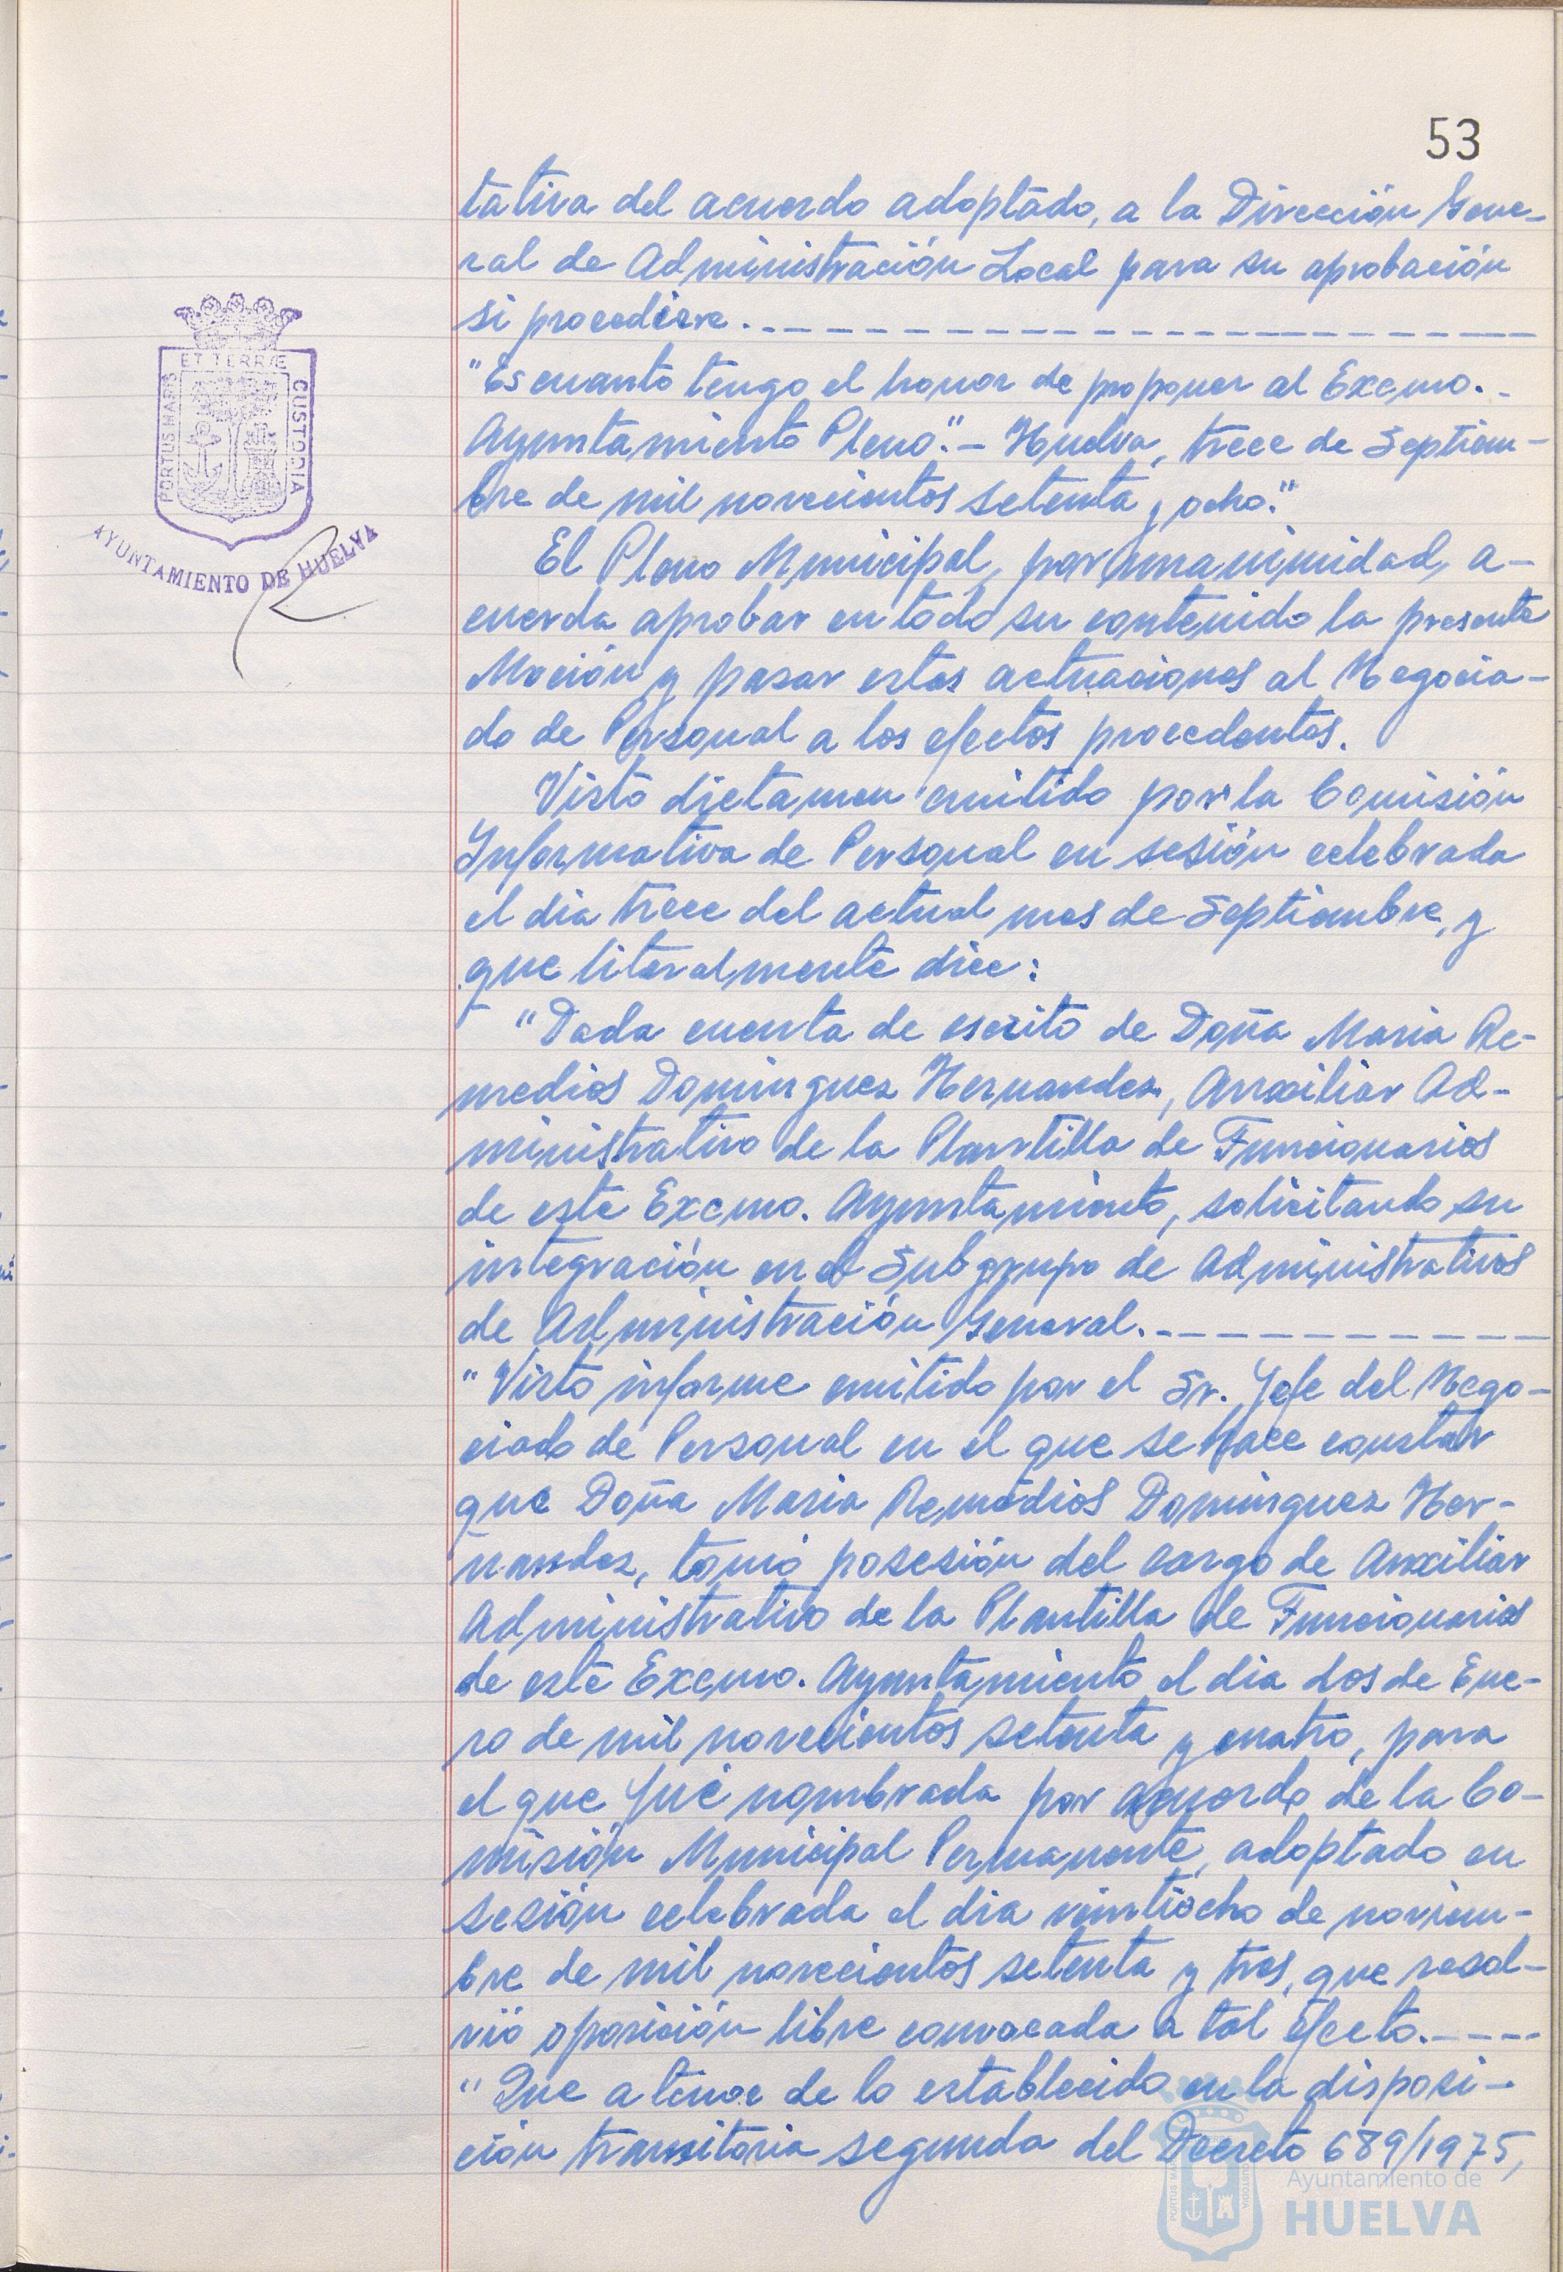 53
tativa del acuerdo adoptado, a la Dirección Gene-
ral de Administración Local para su aprobación
si procediere.
"Es cuanto tengo el honor de proponer al Excmo.-
Ayuntamiento Pleno".- Huelva, trece de Septiem-
bre de mil novecientos setenta y ocho."
El Pleno Municipal, por unanimidad, a-
cuerda aprobar en todo su contenido la presente
Moción y pasar estas actuaciones al Negocia-
do de Personal a los efectos procedentes.
Visto dictamen emitido por la Comisión
Informativa de Personal en sesión celebrada
el dia trece del actual mes de Septiembre, y
que literalmente dice:
"Dada cuenta de escrito de Doña Maria Re-
medios Dominguez Hernandez, Auxiliar Ad-
ministrativo de la Plantilla de Funcionarios
de este Excmo. Ayuntamiento, solicitando su
integración en el Subgrupo de Administrativos
de Administración General.
"Visto informe emitido por el Sr. Jefe del Nego-
ciado de Personal en el que se hace constar
que Doña Maria Remedios Dominguez Her-
nandez, tomó posesión del cargo de Auxiliar
Administrativo de la Plantilla de Funcionarios
de este Excmo. Ayuntamiento el dia dos de Ene-
ro de mil novecientos setenta y cuatro, para
el que fué nombrada por acuerdo de la Co-
misión Municipal Permanente, adoptado en
sesión celebrada el dia veintiocho de noviem-
bre de mil novecientos setenta y tres, que resol-
vió oposición libre convocada a tal efecto.----
"Que a tenor de lo establecido en la disposi-
ción transitoria segunda del Decreto 689/1975,
PORTUS MARIS
ET TERRÆ
CUSTODIA
AYUNTAMIENTO DE HUELVA
Ayuntamiento de
HUELVA